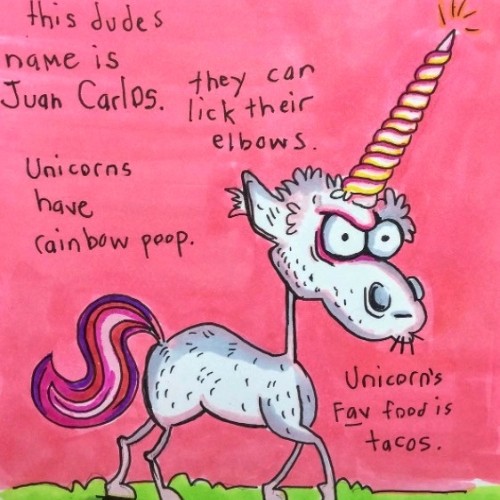 this dudes
name is
Juan Carlos.
they can
lick their
elbows.
Unicorns
have
rainbow poop.
Unicorn's
Fav food is
tacos.